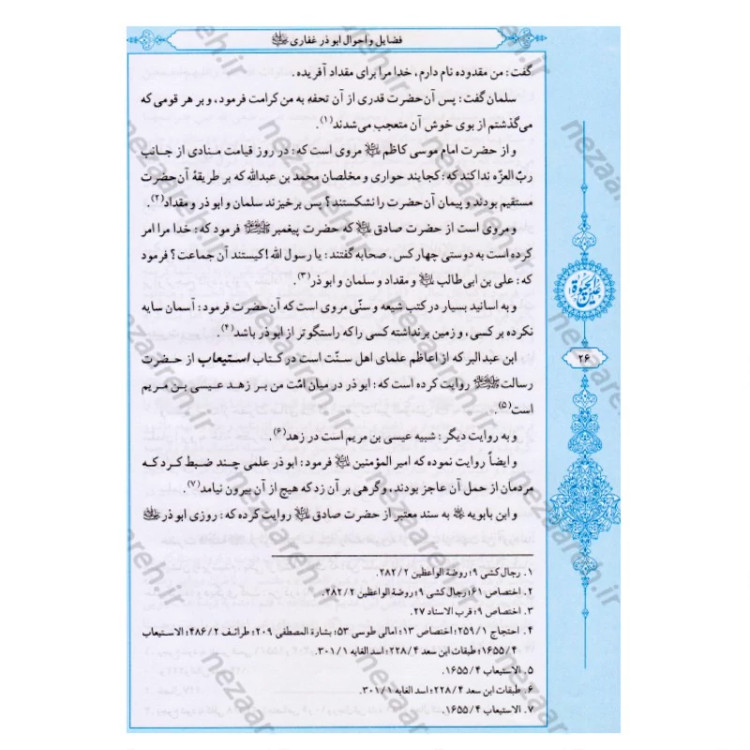 فضایل و احوال ابوذر غفاری
گفت: من مقدوده نام دارم، خدا مرا برای مقداد آفریده.
سلمان گفت: پس آن حضرت قدری از آن تحفه به من کرامت فرمود، و بر هر قومی که
می‌گذشتم از بوی خوش آن متعجب می‌شدند(۱).
و از حضرت امام موسی کاظم ﷷ مروی است که: در روز قیامت منادی از جانب
ربّ العزّه ندا کند که: کجایند حواری و مخلصان محمد بن عبدالله که بر طریقهٔ آن حضرت
مستقیم بودند و پیمان آن حضرت را نشکستند؟ پس برخیزند سلمان و ابوذر و مقداد(۲).
و مروی است از حضرت صادق که حضرت پیغمبر ﷺ فرمود که: خدا مرا امر
کرده است به دوستی چهار کس. صحابه گفتند: یا رسول الله! کیستند آن جماعت؟ فرمود
که: علی بن ابی‌طالب و مقداد و سلمان و ابوذر(۳).
و به اسانید بسیار در کتب شیعه و سنّی مروی است که آن حضرت فرمود: آسمان سایه
نکرده بر کسی، و زمین برنداشته کسی را که راستگوتر از ابوذر باشد(۴).
ابن عبدالبر که از اعاظم علمای اهل سنّت است در کتاب استیعاب از حضرت
رسالت ﷺ روایت کرده است که: ابوذر در میان امّت من بر زهد عیسی بن مریم
است(۵).
و به روایت دیگر: شبیه عیسی بن مریم است در زهد(۶).
و ایضاً روایت نموده که امیر المؤمنین فرمود: ابوذر علمی چند ضبط کرد که
مردمان از حمل آن عاجز بودند، و گرهی بر آن زد که هیچ از آن بیرون نیامد(۷).
و ابن بابویه به سند معتبر از حضرت صادق روایت کرده که: روزی ابوذر
۱. رجال کشی ۹؛ روضة الواعظین ۲۸۲/۲.
۲. اختصاص ۶۱؛ رجال کشی ۹؛ روضة الواعظین ۲۸۲/۲.
۳. اختصاص ۹؛ قرب الاسناد ۲۷.
۴. احتجاج ۲۵۹/۱؛ اختصاص ۱۳؛ امالی طوسی ۵۳؛ بشارة المصطفی ۲۰۹؛ طرائف ۴۸۶/۲؛ الاستیعاب
۱۶۵۵/۴؛ طبقات ابن سعد ۲۲۸/۴؛ اسد الغابه ۳۰۱/۱.
۵. الاستیعاب ۱۶۵۵/۴.
۶. طبقات ابن سعد ۲۲۸/۴؛ اسد الغابه ۳۰۱/۱.
۷. الاستیعاب ۱۶۵۵/۴.
عین الحیوة
۲۶
nezaareh.ir